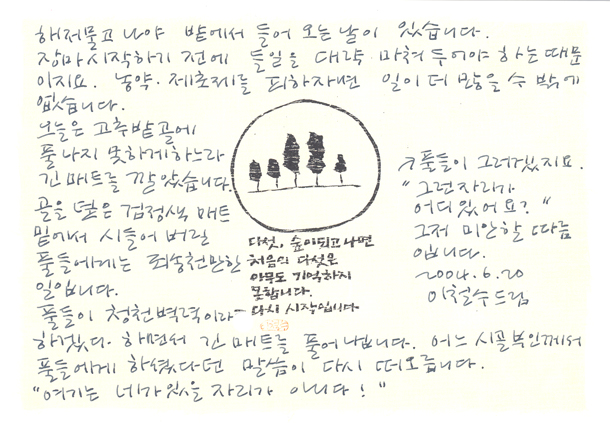 해저물고 나야 밭에서 들어 오는 날이 있습니다.
장마 시작하기 전에 들일을 대략 마쳐 두어야 하는 때문
이지요. 농약·제초제를 피하자면 일이 더 많을 수 밖에
없습니다.
오늘은 고추밭골에
풀 나지 못하게 하느라
긴 매트를 깔았습니다.
골을 덮은 검정색 매트
밑에서 시들어 버릴
풀들에게는 죄송천만한
일입니다.
풀들이 청천벽력이라
하겠다. 하면서 긴 매트를 풀어 냅니다. 어느 시골 부인께서
풀들에게 하셨다던 말씀이 다시 떠오릅니다.
"여기는 네가 있을 자리가 아니다!"
다섯, 숲이 되고 나면
처음의 다섯은
아무도 기억하지
못합니다.
다시 시작입니다
풀들이 그러겠지요.
"그런 자리가
어디 있어요?"
그저 미안할 따름
입니다.
2004.6.20
이철수 드림